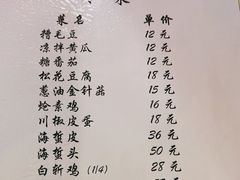 菜名 单价
糟毛豆 12元
凉拌黄瓜 12元
糖番茄 12元
松花豆腐 18元
葱油金针菇 15元
烩素鸡 16元
川椒皮蛋 18元
海蜇皮 36元
海蜇头 50元
白斩鸡(1/4) 28元